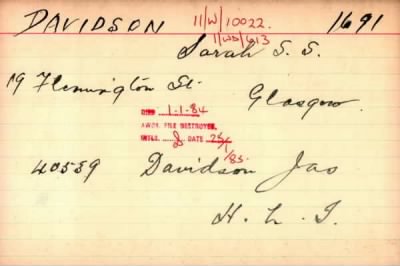 DAVIDSON 11/W/10022. 1691
11/WS/613
Sarah S. S.
19 Flemington St. Glasgow.
DIED 1-1-84
AWDS. FILE DESTROYED.
INTLS. DATE 25/1/85.
40559 Davidson Jas
H. L. I.